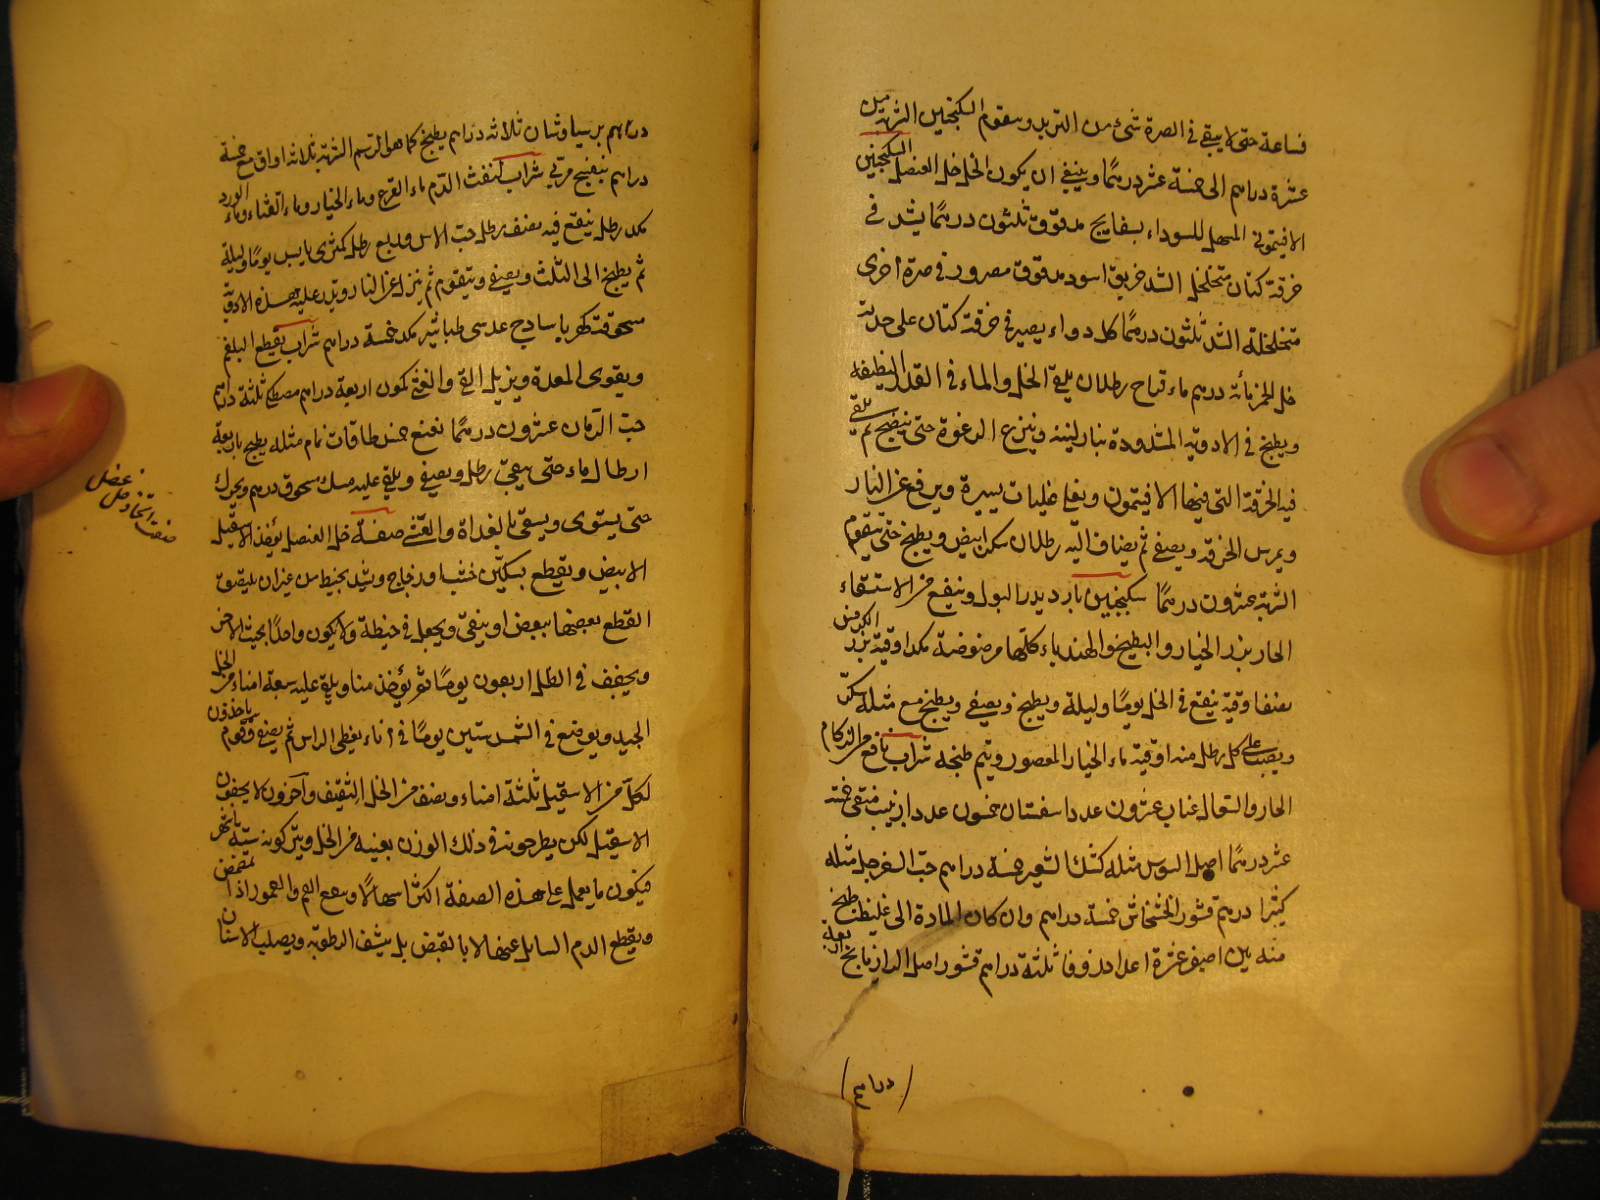 فساعة حتى لا يبقى فى الصرة شئ من التربد ويقوم السكنجبين الشربة من
عشرة دراهم الى خمسة عشر درهمًا وينبغى ان يكون الخل خل العنصل السكنجبين
الافتيمونى المسهل للسوداء بسفايج مدقوق ثلثون درهمًا يشد فى
خرقة كتان متخلخل الشد خربق اسود مدقوق مصرور فى صرة اخرى
متخلخلة الشد ثلثون درهمًا كل دواء يصير فى خرقة كتان على حدته
خل الخمر مائة درهم ماء قراح رطلان يلقى الخل والماء فى القدر النظيفة
ويطبخ فى الادوية المشدودة بنار لينة وينزع الرغوة حتى ينضج ثم يلقى
فيه الخرقة التى فيها الافتيمون ويغلى غليات يسيرة ويرفع عن النار
ويمرس الخرقة ويصفى ثم يضاف اليه رطلان سكر ابيض ويطبخ حتى يتقوم
الشربة عشرون درهمًا سكنجبين بارد يدر البول وينفع من الاستسقاء
الحار بزر الخيار والبطيخ والهندباء كلها مرضوضة مكد اوقية بزر الكرفس
نصف اوقية ينقع فى الخل يومًا وليلة ويطبخ ويصفى ويطبخ مع مثله سكر
ويصب على كل رطل منه اوقية ماء الخيار المعصور ويتم طبخه شراب نافع من الزكام
الحار والسعال عناب عشرون عددا سفستان خمسون عددا زبيب منقى خمسة
عشر درهمًا اصل السوس مثله كشك الشعير خمسة دراهم حب السفرجل مثله
كثيرا درهم قشور الخشخاش خمسة دراهم وان كان المادة الى غليظة طبخ
منه تين اصفر عشرة اعداد زوفا ثلثة دراهم قشور اصل الرازيانج اربعة
دراهم
دراهم برسياوشان ثلاثة دراهم يطبخ كما هو الرسم الشربة ثلاثة اواق مع خمسة
دراهم بنفسج مربى شراب لنفث الدم ماء القرع وماء الخيار وماء القثاء وماء الورد
مكد رطل ينقع فيه نصف رطل حب الاس وربع رطل كمثرى يابس يومًا وليلة
ثم يطبخ الى الثلث ويصفى ويتقوم ثم ينزل عن النار ويذر عليه هذه الادوية
مسحوقة كهربا ساذج عدسى طباشير مكد خمسة دراهم شراب يقطع البلغم
ويقوى المعدة ويزيل القئ والنفخ كمون اربعة دراهم مصطكى ثلثة دراهم
حب الرمان عشرون درهمًا نعنع خمس طاقات نمام مثله يطبخ باربعة
ارطال ماء حتى يبقى رطل ويصفى ويلقى عليه مسك مسحوق درهم ويحرك
حتى يستوى ويسقى بالغداة والعشى صفة خل العنصل يؤخذ الاسقيل
الابيض ويقطع بسكين خشب او زجاج ويشد بخيط من غير ان يلتصق
القطع بعضها ببعض او ينقى ويجعل فى خيطة ولا يكون واصلًا بحيث الاخر
ويجفف فى الظل اربعون يومًا ثم يؤخذ منا ويلقى عليه سبعة امناء من الخل
الجيد ويوضع فى الشمس ستين يومًا فى اناء يغطى الراس ثم يصفى وقوم ياخذون
لكل من الاسقيل ثلثة امناء ونصف من الخل الثقيف وآخرون لا يجففون
الاسقيل لكن يطرحونه فى ذلك الوزن بعينه من الخل ويتركونه ستة اشهر
فيكون ما يعمل على هذه الصفة اكثر اسهالًا وينفع الفم والعمور اذا تمضمض
ويقطع الدم السايل عنها لا بالقبض بل ينشف الرطوبة ويصلب الاسنان
صفت اتخاذ خل عنصل